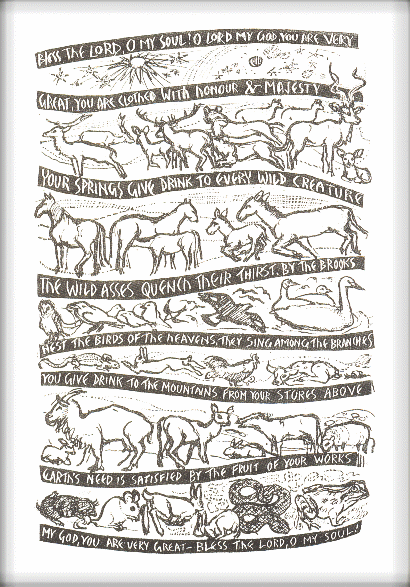 BLESS THE LORD, O MY SOUL! O LORD MY GOD, YOU ARE VERY
GREAT, YOU ARE CLOTHED WITH HONOUR & MAJESTY
YOUR SPRINGS GIVE DRINK TO EVERY WILD CREATURE
THE WILD ASSES QUENCH THEIR THIRST. BY THE BROOKS
NEST THE BIRDS OF THE HEAVENS, THEY SING AMONG THE BRANCHES
YOU GIVE DRINK TO THE MOUNTAINS FROM YOUR STORES ABOVE
EARTH'S NEED IS SATISFIED BY THE FRUIT OF YOUR WORKS
MY GOD, YOU ARE VERY GREAT - BLESS THE LORD, O MY SOUL!